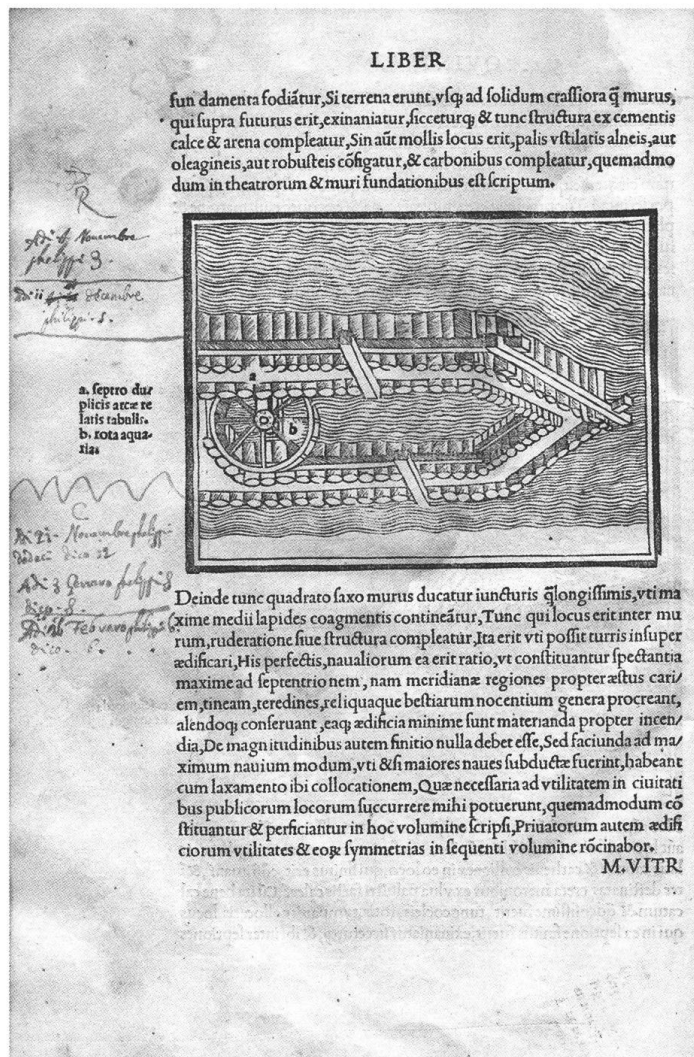 LIBER
fun damenta fodiãtur,Si terrena erunt,vſq; ad ſolidum craſſiora q̃ murus,
qui ſupra futurus erit,exinaniatur,ſicceturq; & tunc ſtructura ex cementis
calce & arena compleatur,Sin aũt mollis locus erit,palis vſtilatis alneis,aut
oleagineis,aut robuſteis cõfigatur,& carbonibus compleatur,quemadmo
dum in theatrorum & muri fundationibus eſt ſcriptum.
Adi Nouembre
phelippi 3.
Adi ii decembre
philippi
a. ſeptro du/
plicis arcæ re
latis tabulis.
b. rota aqua/
ria.
a
b
Adi 21 Nouembre phelippi
dico 12
Adi 3 phelippi 8
dico 8.
Adi Febuaro philippi 6.
dico 6.
Deinde tunc quadrato ſaxo murus ducatur iuncturis q̃longiſſimis,vti ma
xime medii lapides coagmentis contineãtur,Tunc qui locus erit inter mu
rum,ruderatione ſiue ſtructura compleatur,Ita erit vti poſſit turris inſuper
ædificari,His perfectis,naualiorum ea erit ratio,vt conſtituantur ſpectantia
maxime ad ſeptentrio nem, nam meridianæ regiones propter æſtus cari/
em,tineam,teredines,reliquaque beſtiarum nocentium genera procreant,
alendoq; conſeruant ,eaq; ædificia minime ſunt materianda propter incen/
dia,De magn itudinibus autem finitio nulla debet eſſe,Sed faciunda ad ma/
ximum nauium modum,vti &ſi maiores naues ſubductæ fuerint,habeant
cum laxamento ibi collocationem,Quæ neceſſaria ad vtilitatem in ciuitati
bus publicorum locorum ſuccurrere mihi potuerunt,quemadmodum cõ
ſtituantur & perficiantur in hoc volumine ſcripſi,Priuatorum autem ædifi
ciorum vtilitates & eoꝝ ſymmetrias in ſequenti volumine rõcinabor.
M.VITR